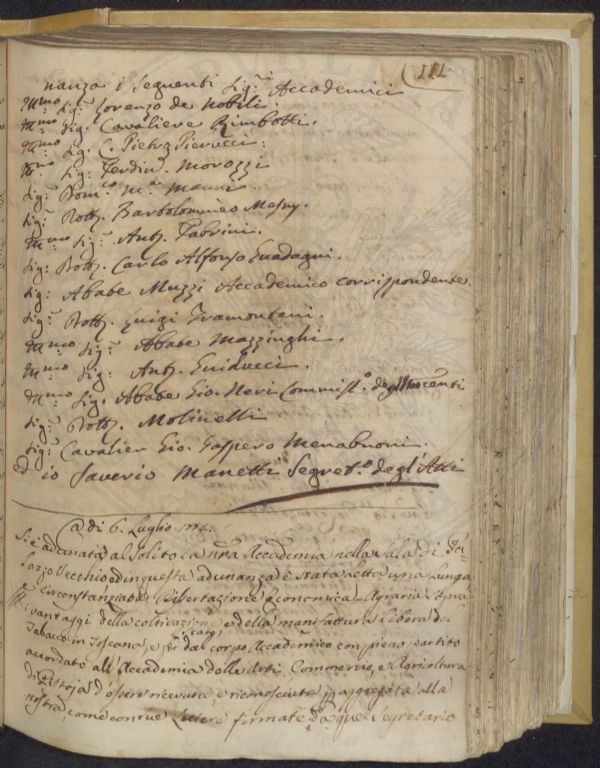 111.
nanza i seguenti Sig.ri Accademici
Ill.mo Sig. Lorenzo de Nobili.
Ill.mo Sig. Cavaliere Rimbotti.
Ill.mo Sig. C. Pietro Pierucci:
Ill.mo Sig: Ferdin. Morozzi
Sig: Dom.co M.a Manni
Sig: Dott. Bartolommeo Mesny.
Ill.mo Sig: Ant. Fabrini.
Sig: Dott. Carlo Alfonso Guadagni.
Sig: Abate Muzzi Accademico corrispondente.
Sig: Dott. Luigi Tramontani.
Ill.mo Sig: Abate Mazzinghi.
Ill.mo Sig: Ant. Guiducci.
Ill.mo Sig. Abate Gio. Neri Commiss.o degl'Innocenti
Sig: Dott. Molinelli
Sig: Cavalier Gio. Gaspero Menabuoni.
ed io Saverio Manetti Segret.o degl'Atti
@ di 6. Luglio
Si è adunata al solito la nra Accademia nella Sala di Pa-
lazzo Vecchio, ed in questa adunanza è stata letta una lunga
circonstanziata Dissertazione Economica - Agraria sopra
i vantaggi della coltivazione, e della manifattura libera del
Tabacco in Toscana, e dal corpo Accademico con pieno partito
accordato all'Accademia delle Arti, Commercio, e Agricoltura
di Pistoja d'esser ricevuta, e riconosciuta p aggregata alla
nostra, come con due Lettere firmate da quel Segretario